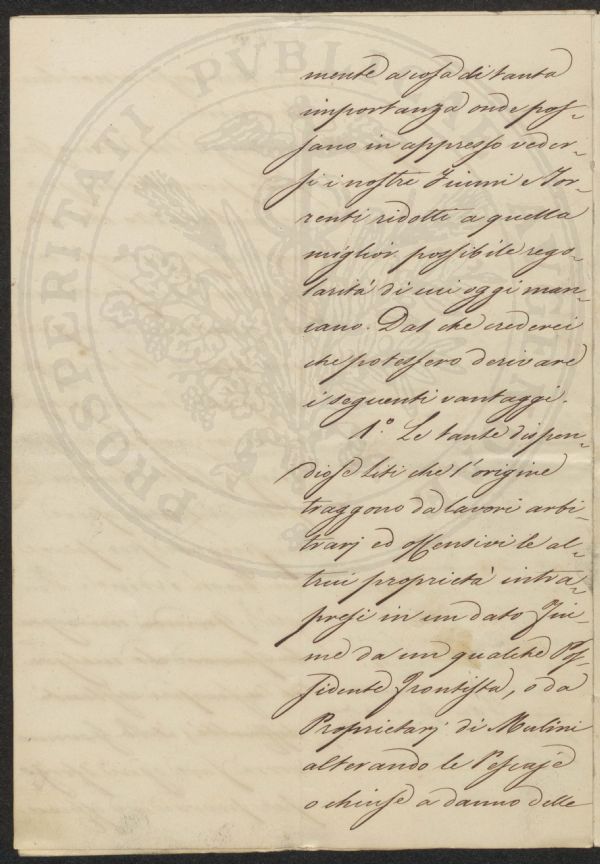 mente a cosa di tanta
importanza onde pos-
sano in appresso veder-
si i nostri Fiumi e Tor-
renti ridotti a quella
miglior possibile rego-
larità di cui oggi man-
cano. Dal che crederei
che potessero derivare
i seguenti vantaggi.
1.° Le tante dispen-
diose liti che l'origine
traggono da lavori arbi-
trarj ed offensivi le al-
trui proprietà intra-
presi in un dato Fiu-
me da un qualche Pos-
sidente Frontista, o da
Proprietarj di Mulini
alterando le Pescaje
o chiuse a danno delle
PROSPERITATI PVBLICAE